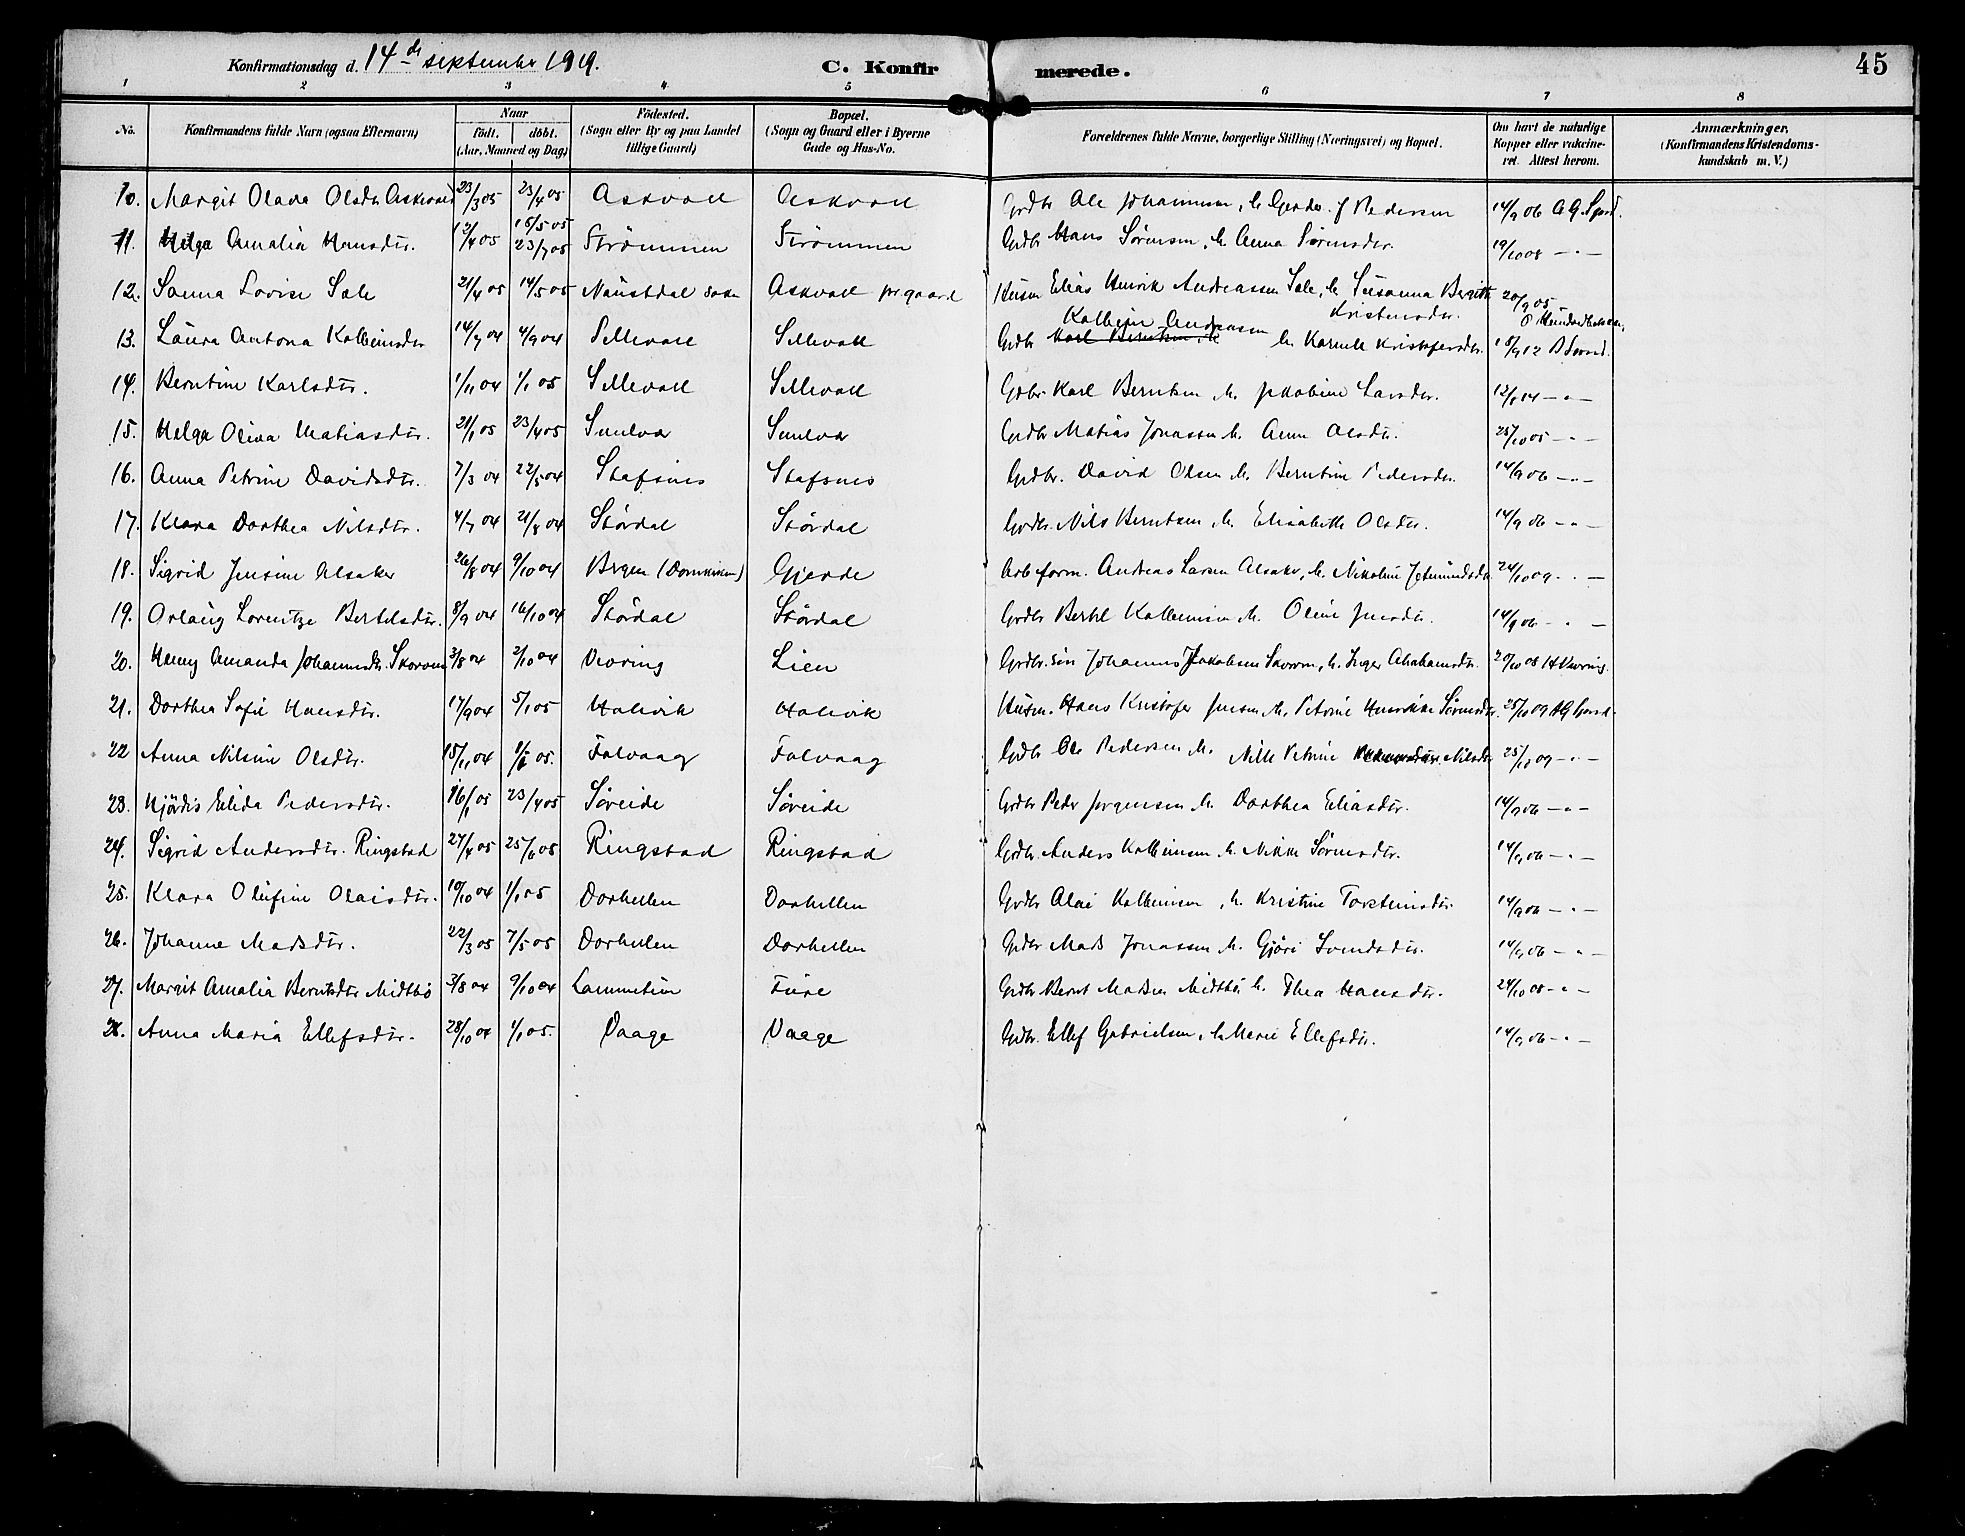 Konfirmationsdag d. 14de september 1919. C. Konfirmerede. 45
1 2 3 4 5 6 7 8
No. Konfirmandens fulde Navn (ogsaa Efternavn) Naar födt. döbt. (Aar, Maaned og Dag) Födested. (Sogn eller By og paa Landet tillige Gaard) Bopæl. (Sogn og Gaard eller i Byerne Gade og Hus-No. Forældrenes fulde Navne, borgerlige Stilling (Næringsvei) og Bopæl. Om havt de naturlige Kopper eller vakcineret. Attest herom. Anmærkninger. (Konfirmandens Kristendomskundskab m. V.)
10. Margit Olava Olsdtr Askvall 23/3 05 23/4 05 Askvall Askvall Grdbr Ole Johannesen, h. Gjerdr. J Pedersen 14/9 06 A G Sprd.
11. Helga Amalia Hansdtr. 12/4 05 15/5 05 23/7 05 Strömmen Strömmen Grdbr Hans Sörensen, h. Anna Sörensdtr. 19/10 08 - " -
12. Sanna Lovise Sale 21/4 05 14/5 05 Naustdal sokn Askvall pr.gaard Husm Elias Henrik Andreassen Sale, h. Susanna Birgitte Kristensdtr. 20/9 05
13. Laura Antona Kolbeinsdtr 14/7 04 4/9 04 Sellevoll Sellevoll Grdbr Kolbein Andreasen h. Karnelle Kristofersdtr. 18/9 12
14. Berntine Karlsdtr. 1/11 04 1/1 05 Sellevoll Sellevoll Grdbr. Karl Berntsen h. Jakobine Larsdtr. 12/1 14 - " -
15. Helga Oliva Matiasdtr. 21/1 05 23/4 05 Sundvor Sundvor Grdbr Matias Jonassen h. Anna Olsdtr. 25/10 05 - " -
16. Anna Petrine Davidsdtr. 7/3 04 22/5 04 Stafsnes Stafsnes Grdbr. David Olsen h. Berntine Pedersdtr. 14/9 06 - " -
17. Klara Dorthea Nilsdtr. 4/7 04 21/8 04 Stördal Stördal Grdbr. Nils Berntsen h. Elisabeth Olsdtr. 14/9 06 - " -
18. Sigrid Jensine Alsaker 26/8 04 9/10 04 Bergen (Domkirken) Gjerde Arb form. Andreas Larsen Alsaker, h. Nikoline Jetmundsdtr 24/10 09 - " -
19. Orlaug Lorentze Bertelsdtr. 8/9 04 16/10 04 Stördal Stördal Grdbr Bertel Kolbeinsen h. Oline Jensdtr. 14/9 06 - " -
20. Henny Amanda Johannesdtr. Skorven 3/8 04 2/10 04 Vevring Lien Grdbr. sön Johannes Jakobsen Skorven, h. Inger Abrahamsdtr. 20/10 08 H Vevring.
21. Dorthea Sofie Hansdtr. 17/9 04 5/1 05 Holevik Holevik Husm. Hans Kristofer Jensen h. Petrine Henrikke Sörensdtr. 25/10 09 A G Sprd.
22 Anna Nilsine Olsdtr. 15/11 04 1/1 05. Folvaag Folvaag Grdbr Ole Pedersen h. Nille Petrine Nilsdtr 25/10 09 - " -
23. Hjördis Elida Pedersdtr. 16/1 05 23/4 05 Söreide Söreide Grdbr Peder Jörgensen h. Dorthea Eliasdtr. 14/9 06 - " -
24. Sigrid Andersdtr. Ringstad 27/4 05 25/6 05 Ringstad Ringstad Grdbr. Anders Kolbeinsen h. Nikke Sörensdtr. 14/9 06 - " -
25. Klara Olufine Olaisdtr. 10/10 04 1/1 05 Dorhellen Dorhellen Grdbr Olai Kolbeinsen, h. Kristine Torsteinsdtr. 14/9 06 - " -
26. Johanne Madsdtr. 22/3 05 7/5 05 Dorhellen Dorhellen Grdbr Mads Jonassen h. Gjöri Svendsdtr. 14/9 06 - " -
27. Margit Amalia Berntsdtr Midtbö 3/8 04 9/10 04 Lammetun Fure Grdbr Bernt Madsen Midtbö h. Thea Hansdtr. 24/10 08 - " -
28. Anna Maria Ellefsdtr. 28/10 04 1/1 05. Vaage Vaage Grdbr. Ellef Gabrielsen, h. Marie Ellefsdtr. 14/9 06 - " -